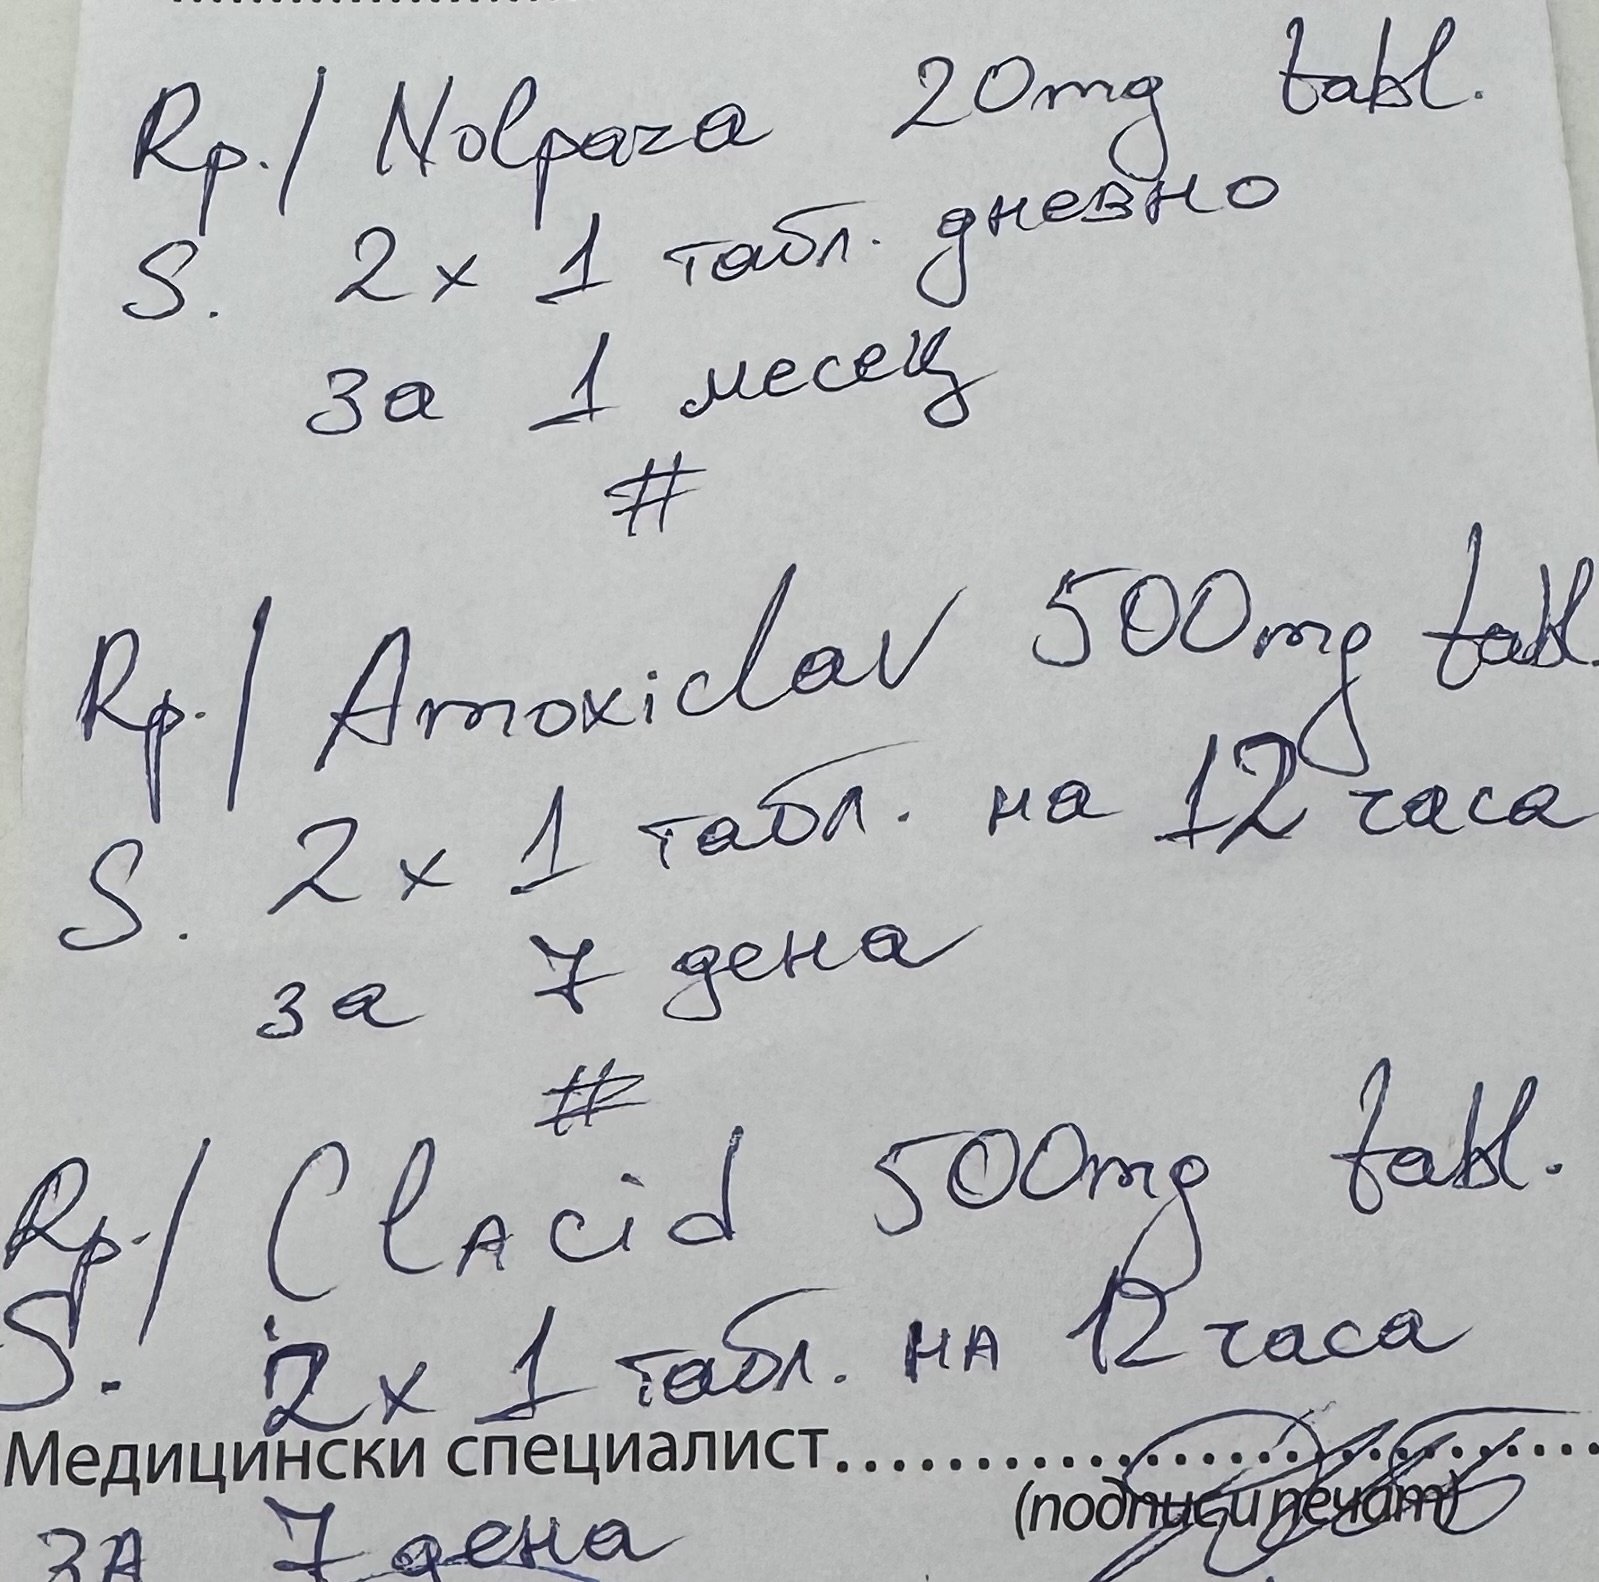 Rp./ Nolpaza 20mg tabl.
S. 2 x 1 табл. дневно
за 1 месец
#
Rp./ Amoxiclav 500mg tabl.
S. 2 x 1 табл. на 12 часа
за 7 дена
#
Rp./ Clacid 500mg tabl.
S. 2 x 1 табл. на 12 часа
Медицински специалист....................
(подпис и печат)
за 7 дена